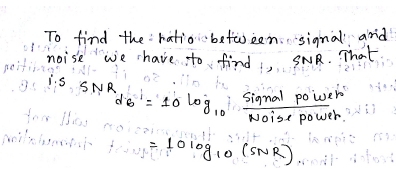 To find the ratio between signal and
noise we have to find, SNR. That
is SNR dB = 10 log 10 Signal power
Noise power.
= 10 log 10 (SNR)